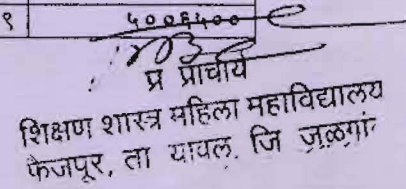 १ ५००६५००
प्र प्राचार्य
शिक्षण शास्त्र महिला महाविद्यालय
फैजपूर, ता यावल. जि जळगांव